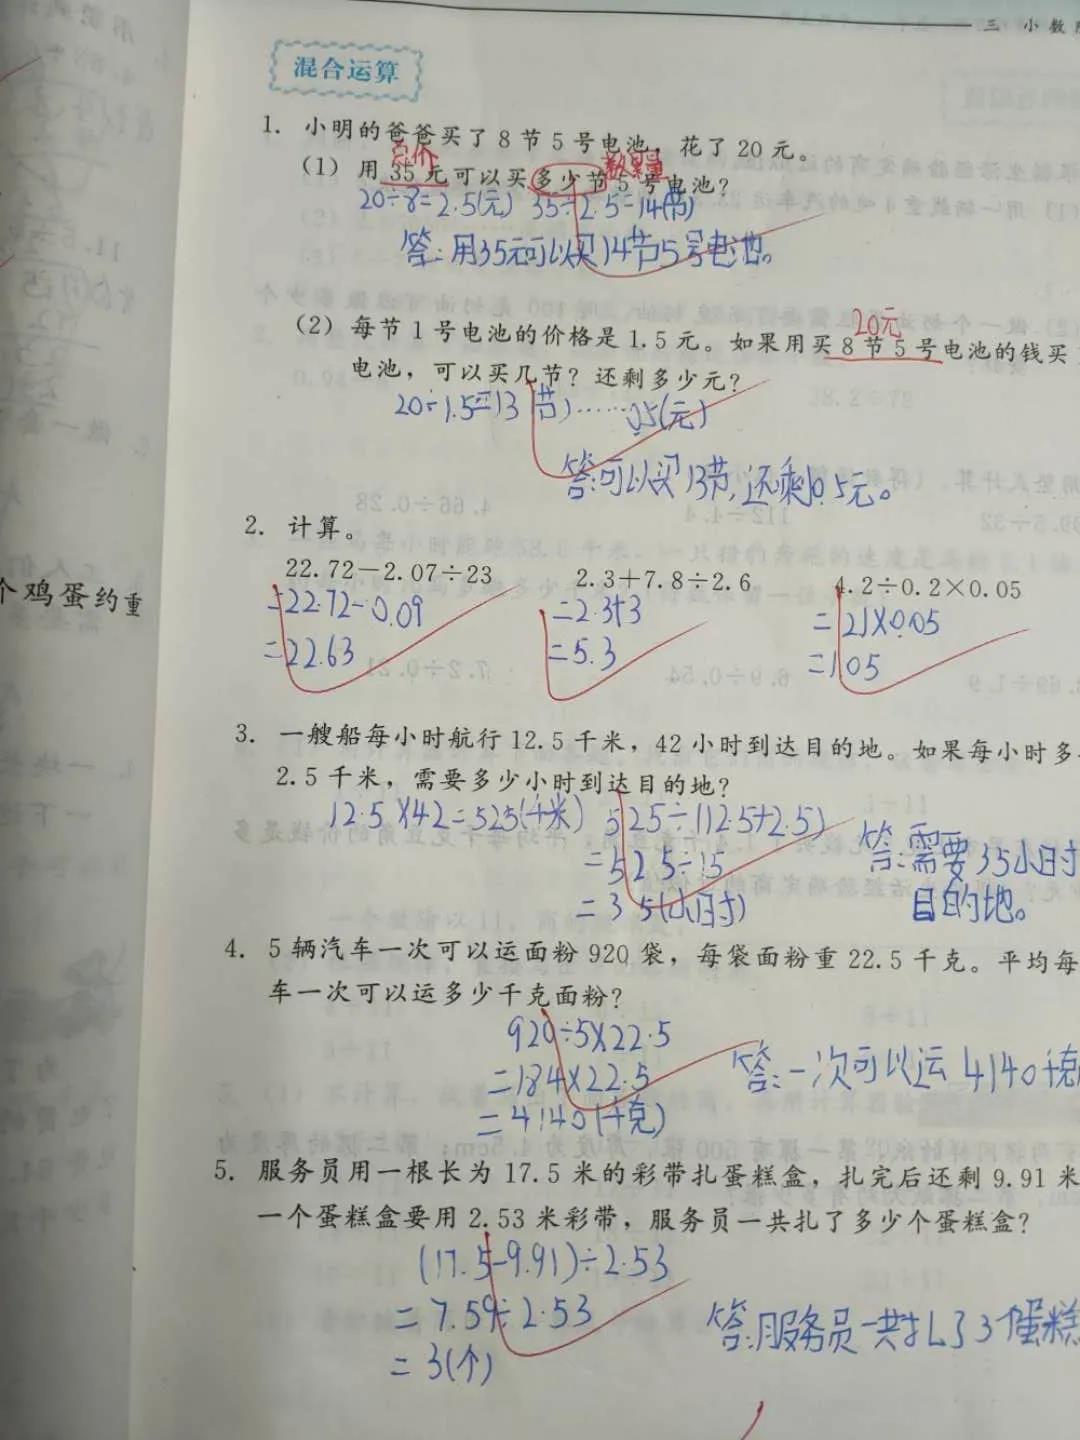 三 小数
混合运算
1. 小明的爸爸买了8节5号电池，花了20元。
总价
数量
(1) 用35元可以买多少节5号电池？
20÷8=2.5(元) 35÷2.5=14(节)
答：用35元可以买14节5号电池。
20元
(2) 每节1号电池的价格是1.5元。如果用买8节5号电池的钱买
电池，可以买几节？还剩多少元？
20÷1.5=13(节)……0.5(元)
答：可以买13节，还剩0.5元。
2. 计算。
22.72-2.07÷23 2.3+7.8÷2.6 4.2÷0.2×0.05
=22.72-0.09 =2.3+3 =21×0.05
=22.63 =5.3 =1.05
个鸡蛋约重
3. 一艘船每小时航行12.5千米，42小时到达目的地。如果每小时多
2.5千米，需要多少小时到达目的地？
12.5×42=525(千米) 525÷(12.5+2.5)
=525÷15
=35(小时)
答：需要35小时
目的地。
4. 5辆汽车一次可以运面粉920袋，每袋面粉重22.5千克。平均每
车一次可以运多少千克面粉？
920÷5×22.5
=184×22.5
=4140(千克)
答：一次可以运4140千克
5. 服务员用一根长为17.5米的彩带扎蛋糕盒，扎完后还剩9.91米
一个蛋糕盒要用2.53米彩带，服务员一共扎了多少个蛋糕盒？
(17.5-9.91)÷2.53
=7.59÷2.53
=3(个)
答：服务员一共扎了3个蛋糕